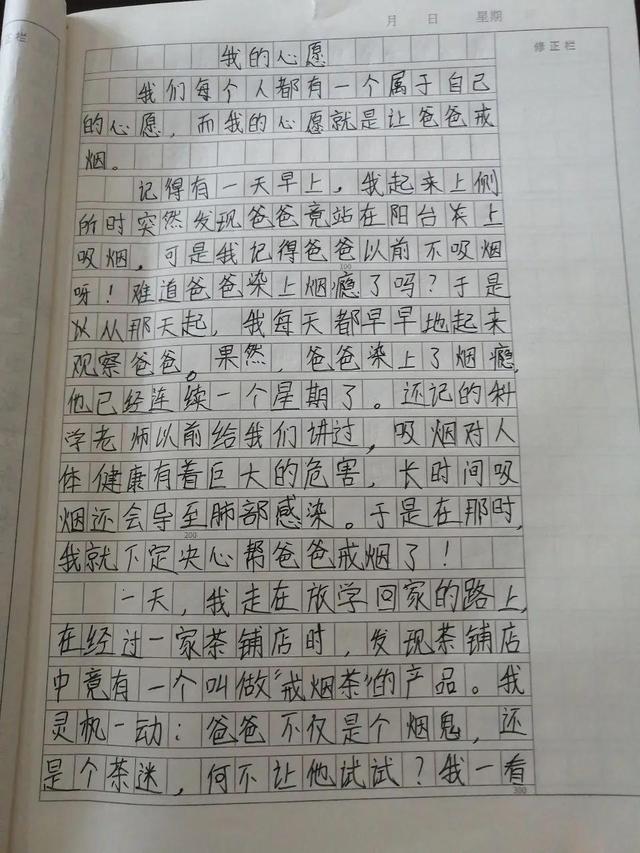 月 日 星期
修正栏
正栏
我的心愿
我们每个人都有一个属于自己
的心愿，而我的心愿就是让爸爸戒
烟。
记得有一天早上，我起来上侧
所时突然发现爸爸竟站在阳台上
吸烟，可是我记得爸爸以前不吸烟
100
呀！难道爸爸染上烟瘾了吗？于是
以从那天起，我每天都早早地起来
观察爸爸。果然，爸爸染上了烟瘾，
他已经连续一个星期了。还记的科
学老师以前给我们讲过，吸烟对人
体健康有着巨大的危害，长时间吸
烟还会导至肺部感染。于是在那时，
200
我就下定决心帮爸爸戒烟了！
一天，我走在放学回家的路上，
在经过一家茶铺店时，发现茶铺店
中竟有一个叫做“戒烟茶”的产品。我
灵机一动：爸爸不仅是个烟鬼，还
是个茶迷，何不让他试试？我一看
300